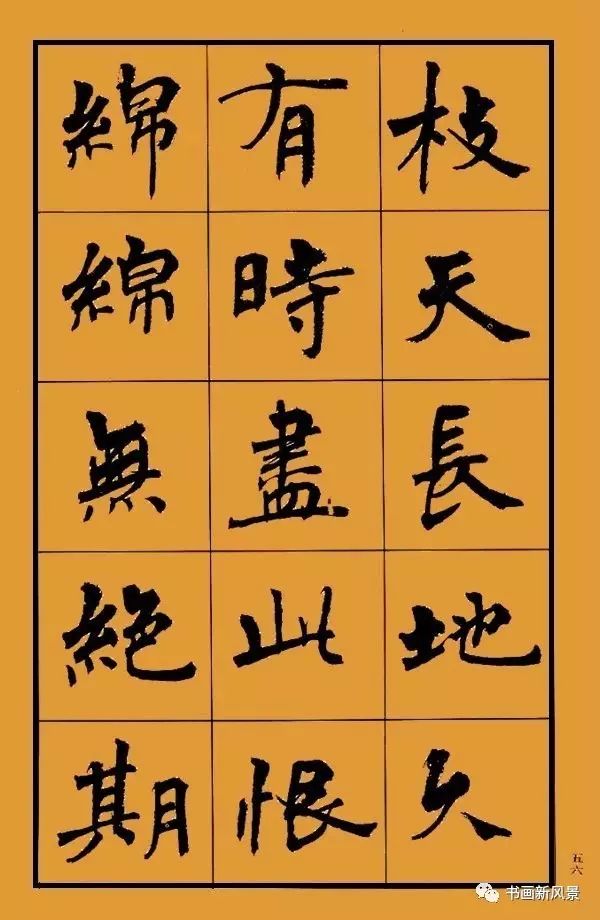 枝天長地久
有時盡此恨
綿綿無絕期
五六
书画新风景